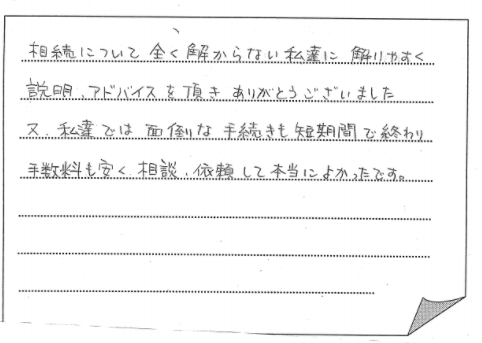 相続について 全く解からない私達に 解りやすく
説明、アドバイスを頂き ありがとうございました
又、私達では 面倒な 手続きも短期間で終わり
手数料も安く 相談、依頼して本当によかったです。